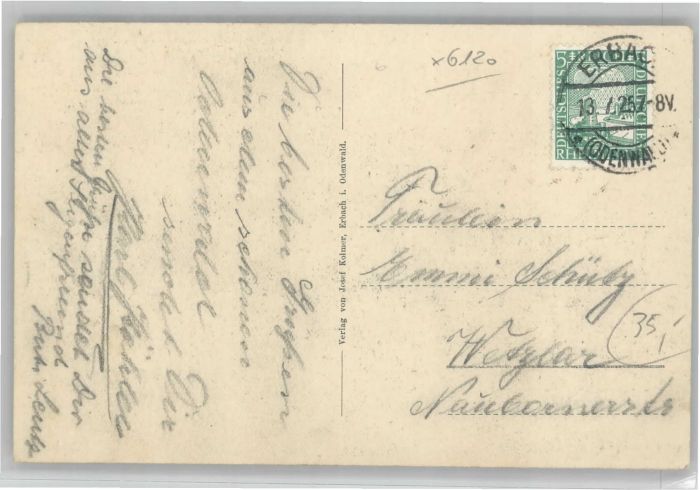 x6120
5 DEUTSCHES 5
DEUTSCHES
RH
ERBACH
13.7.25.7-8V.
(ODENWALD)
Die besten Grüßen
aus dem schönen
Odenwald
sendet Dir
Karl
Die besten Grüße
aus sendet Dir
Jugendfreund
Verlag von Josef Kolmer, Erbach i. Odenwald.
Fräulein
Emmi Schütz
Wetzlar
Naubornerstr
35,